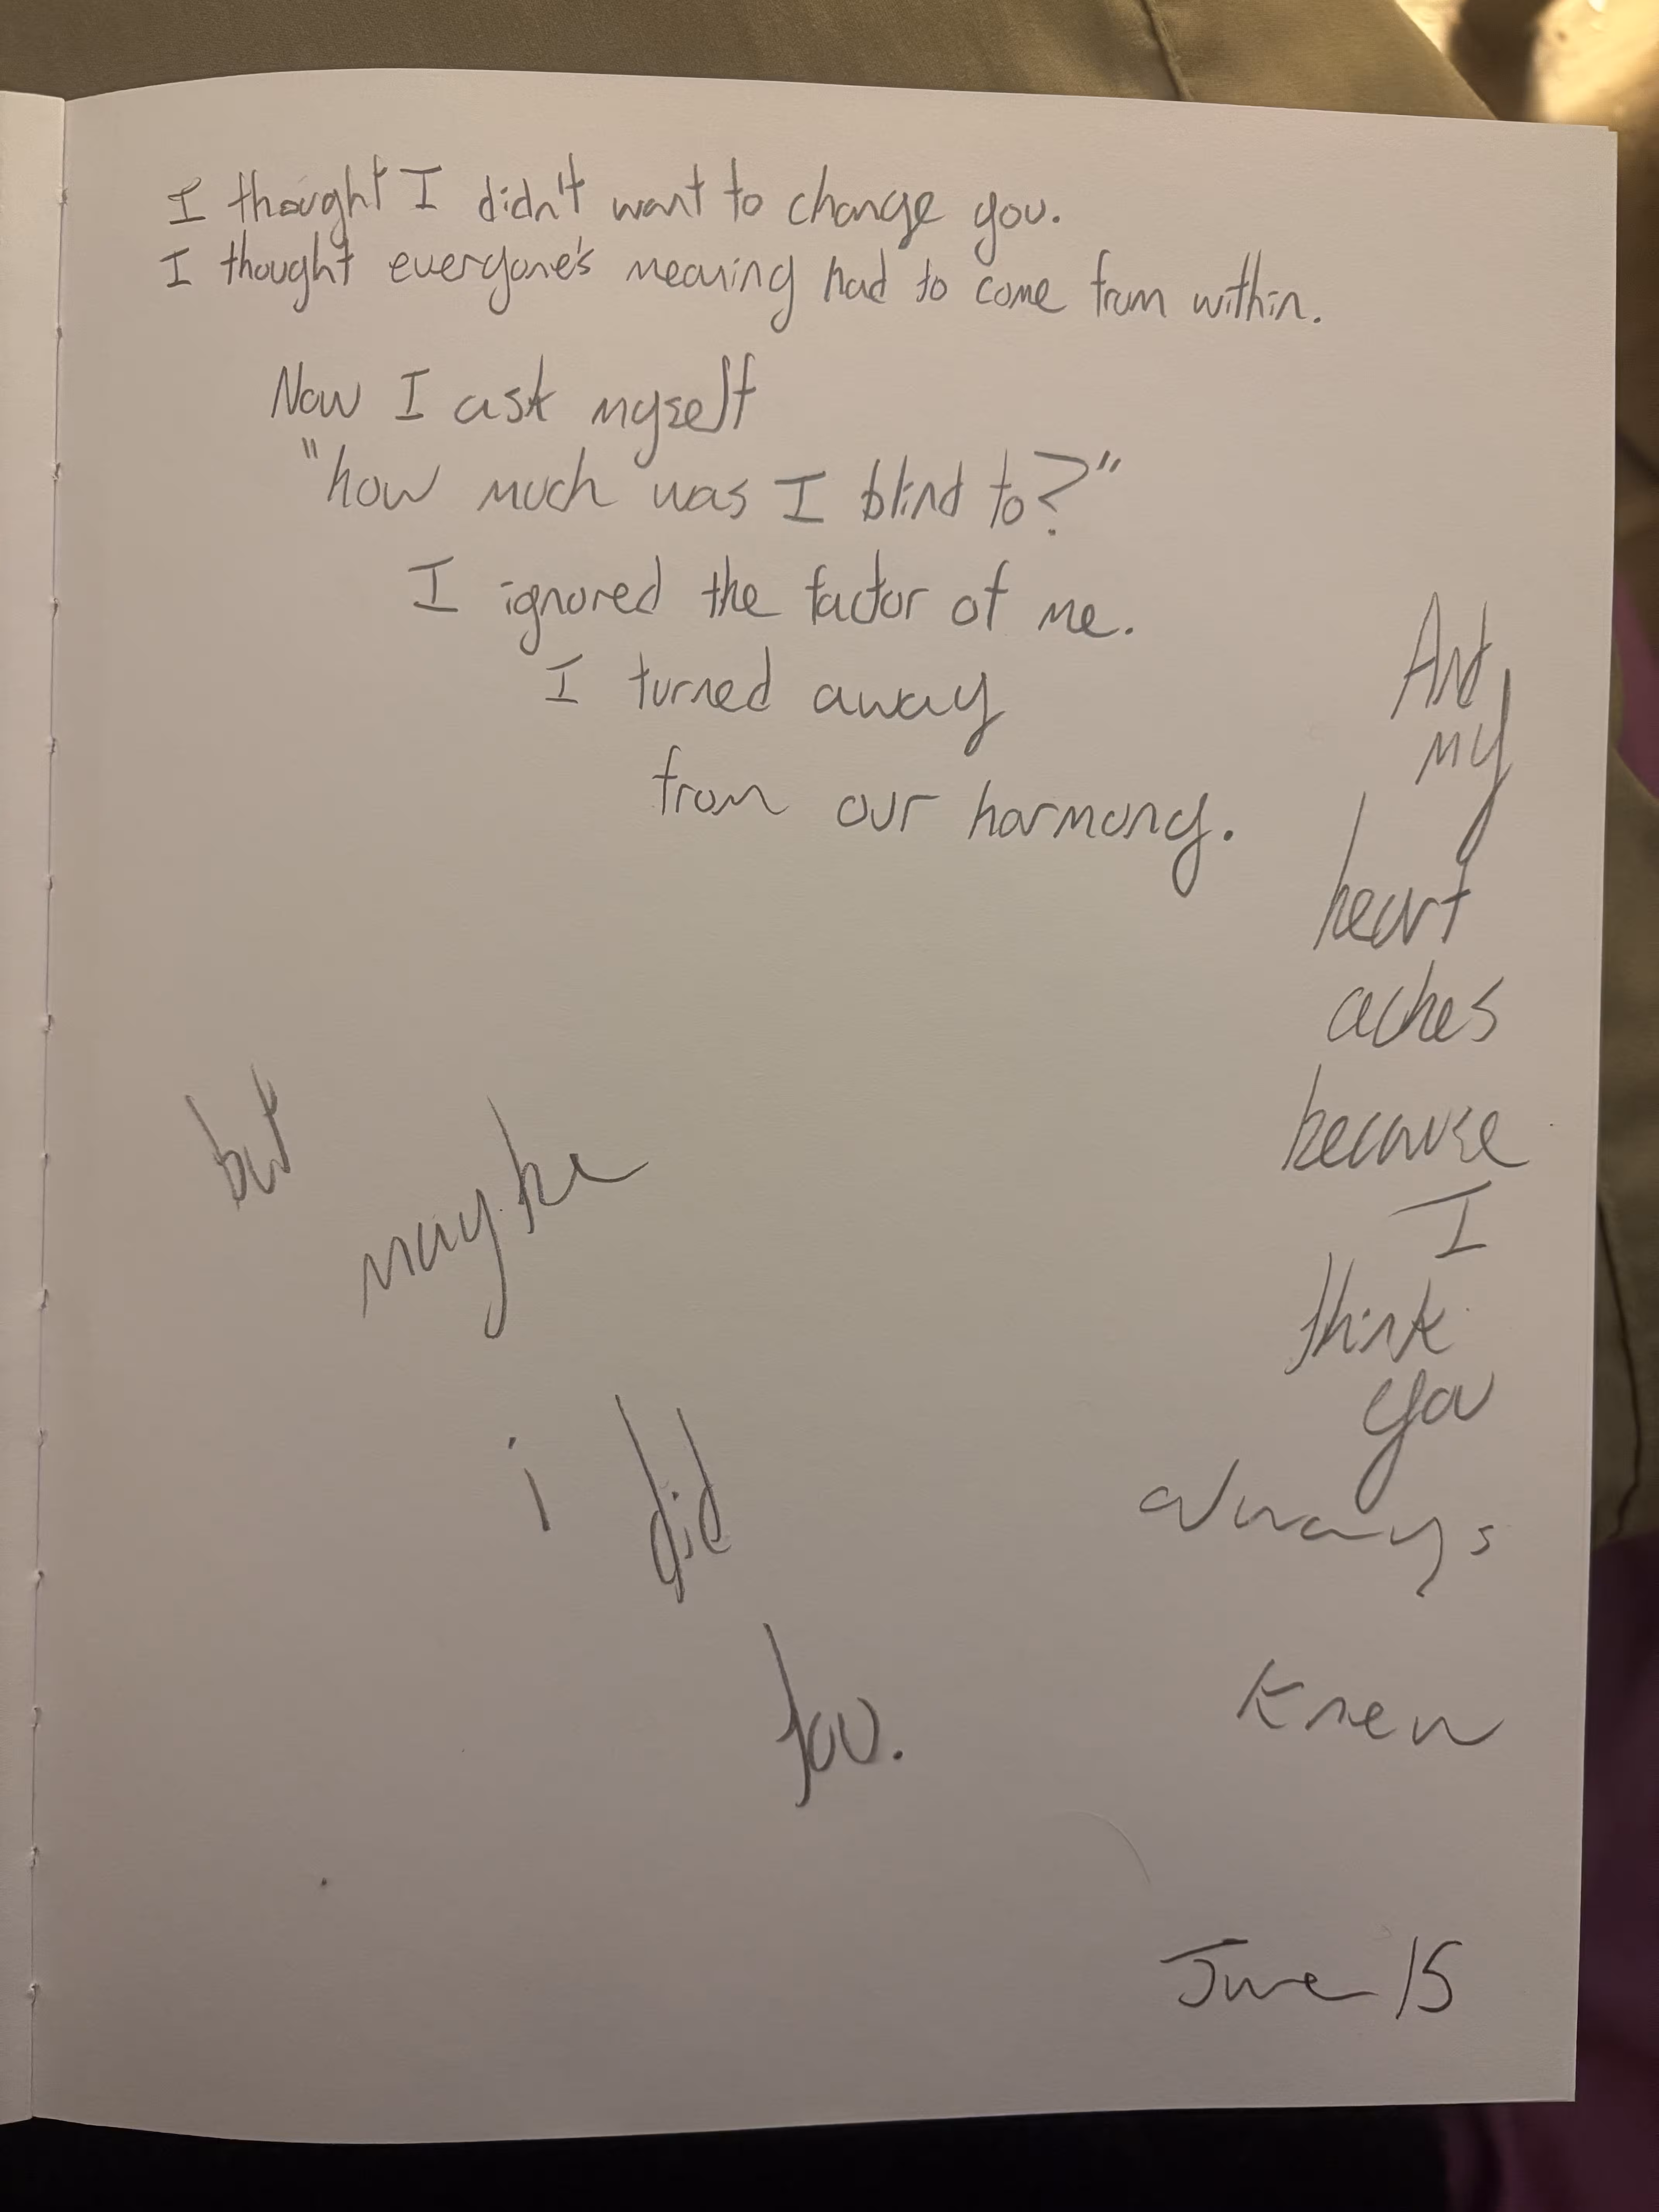 I thought I didn't want to change you.
I thought everyone's meaning had to come from within.
Now I ask myself
"how much was I blind to?"
I ignored the factor of me.
I turned away
from our harmony.
And
my
heart
aches
because
I
think
you
always
knew
but
maybe
i did
too.
June 15